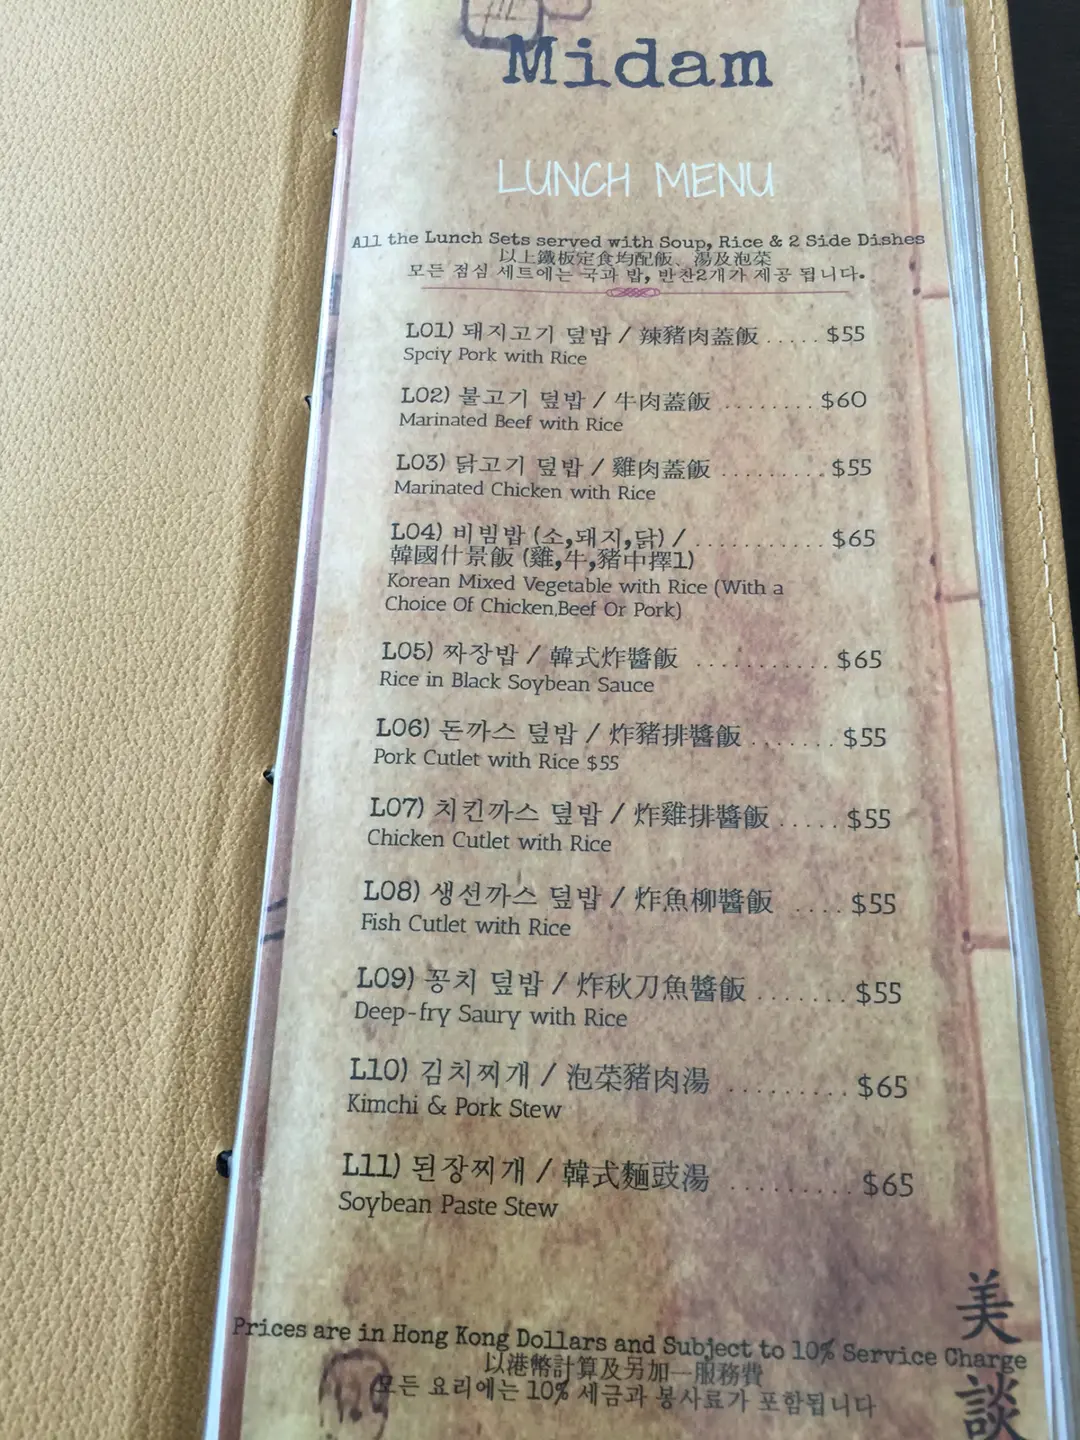 Midam
LUNCH MENU
All the Lunch Sets served with Soup, Rice & 2 Side Dishes
以上鐵板定食均配飯、湯及泡菜
모든 점심 세트에는 국과 밥, 반찬2개가 제공 됩니다.
L01) 돼지고기 덮밥 / 辣豬肉蓋飯 ..... $55
Spciy Pork with Rice
L02) 불고기 덮밥 / 牛肉蓋飯 ........ $60
Marinated Beef with Rice
L03) 닭고기 덮밥 / 雞肉蓋飯 .......... $55
Marinated Chicken with Rice
L04) 비빔밥 (소,돼지,닭) / ............ $65
韓國什景飯 (雞,牛,豬中擇1)
Korean Mixed Vegetable with Rice (With a
Choice Of Chicken,Beef Or Pork)
L05) 짜장밥 / 韓式炸醬飯 ........... $65
Rice in Black Soybean Sauce
L06) 돈까스 덮밥 / 炸豬排醬飯 ....... $55
Pork Cutlet with Rice $55
L07) 치킨까스 덮밥 / 炸雞排醬飯 ..... $55
Chicken Cutlet with Rice
L08) 생선까스 덮밥 / 炸魚柳醬飯 .... $55
Fish Cutlet with Rice
L09) 꽁치 덮밥 / 炸秋刀魚醬飯 ....... $55
Deep-fry Saury with Rice
L10) 김치찌개 / 泡菜豬肉湯 ......... $65
Kimchi & Pork Stew
L11) 된장찌개 / 韓式麵豉湯 ......... $65
Soybean Paste Stew
Prices are in Hong Kong Dollars and Subject to 10% Service Charge
以港幣計算及另加一服務費
모든 요리에는 10% 세금과 봉사료가 포함됩니다
美談